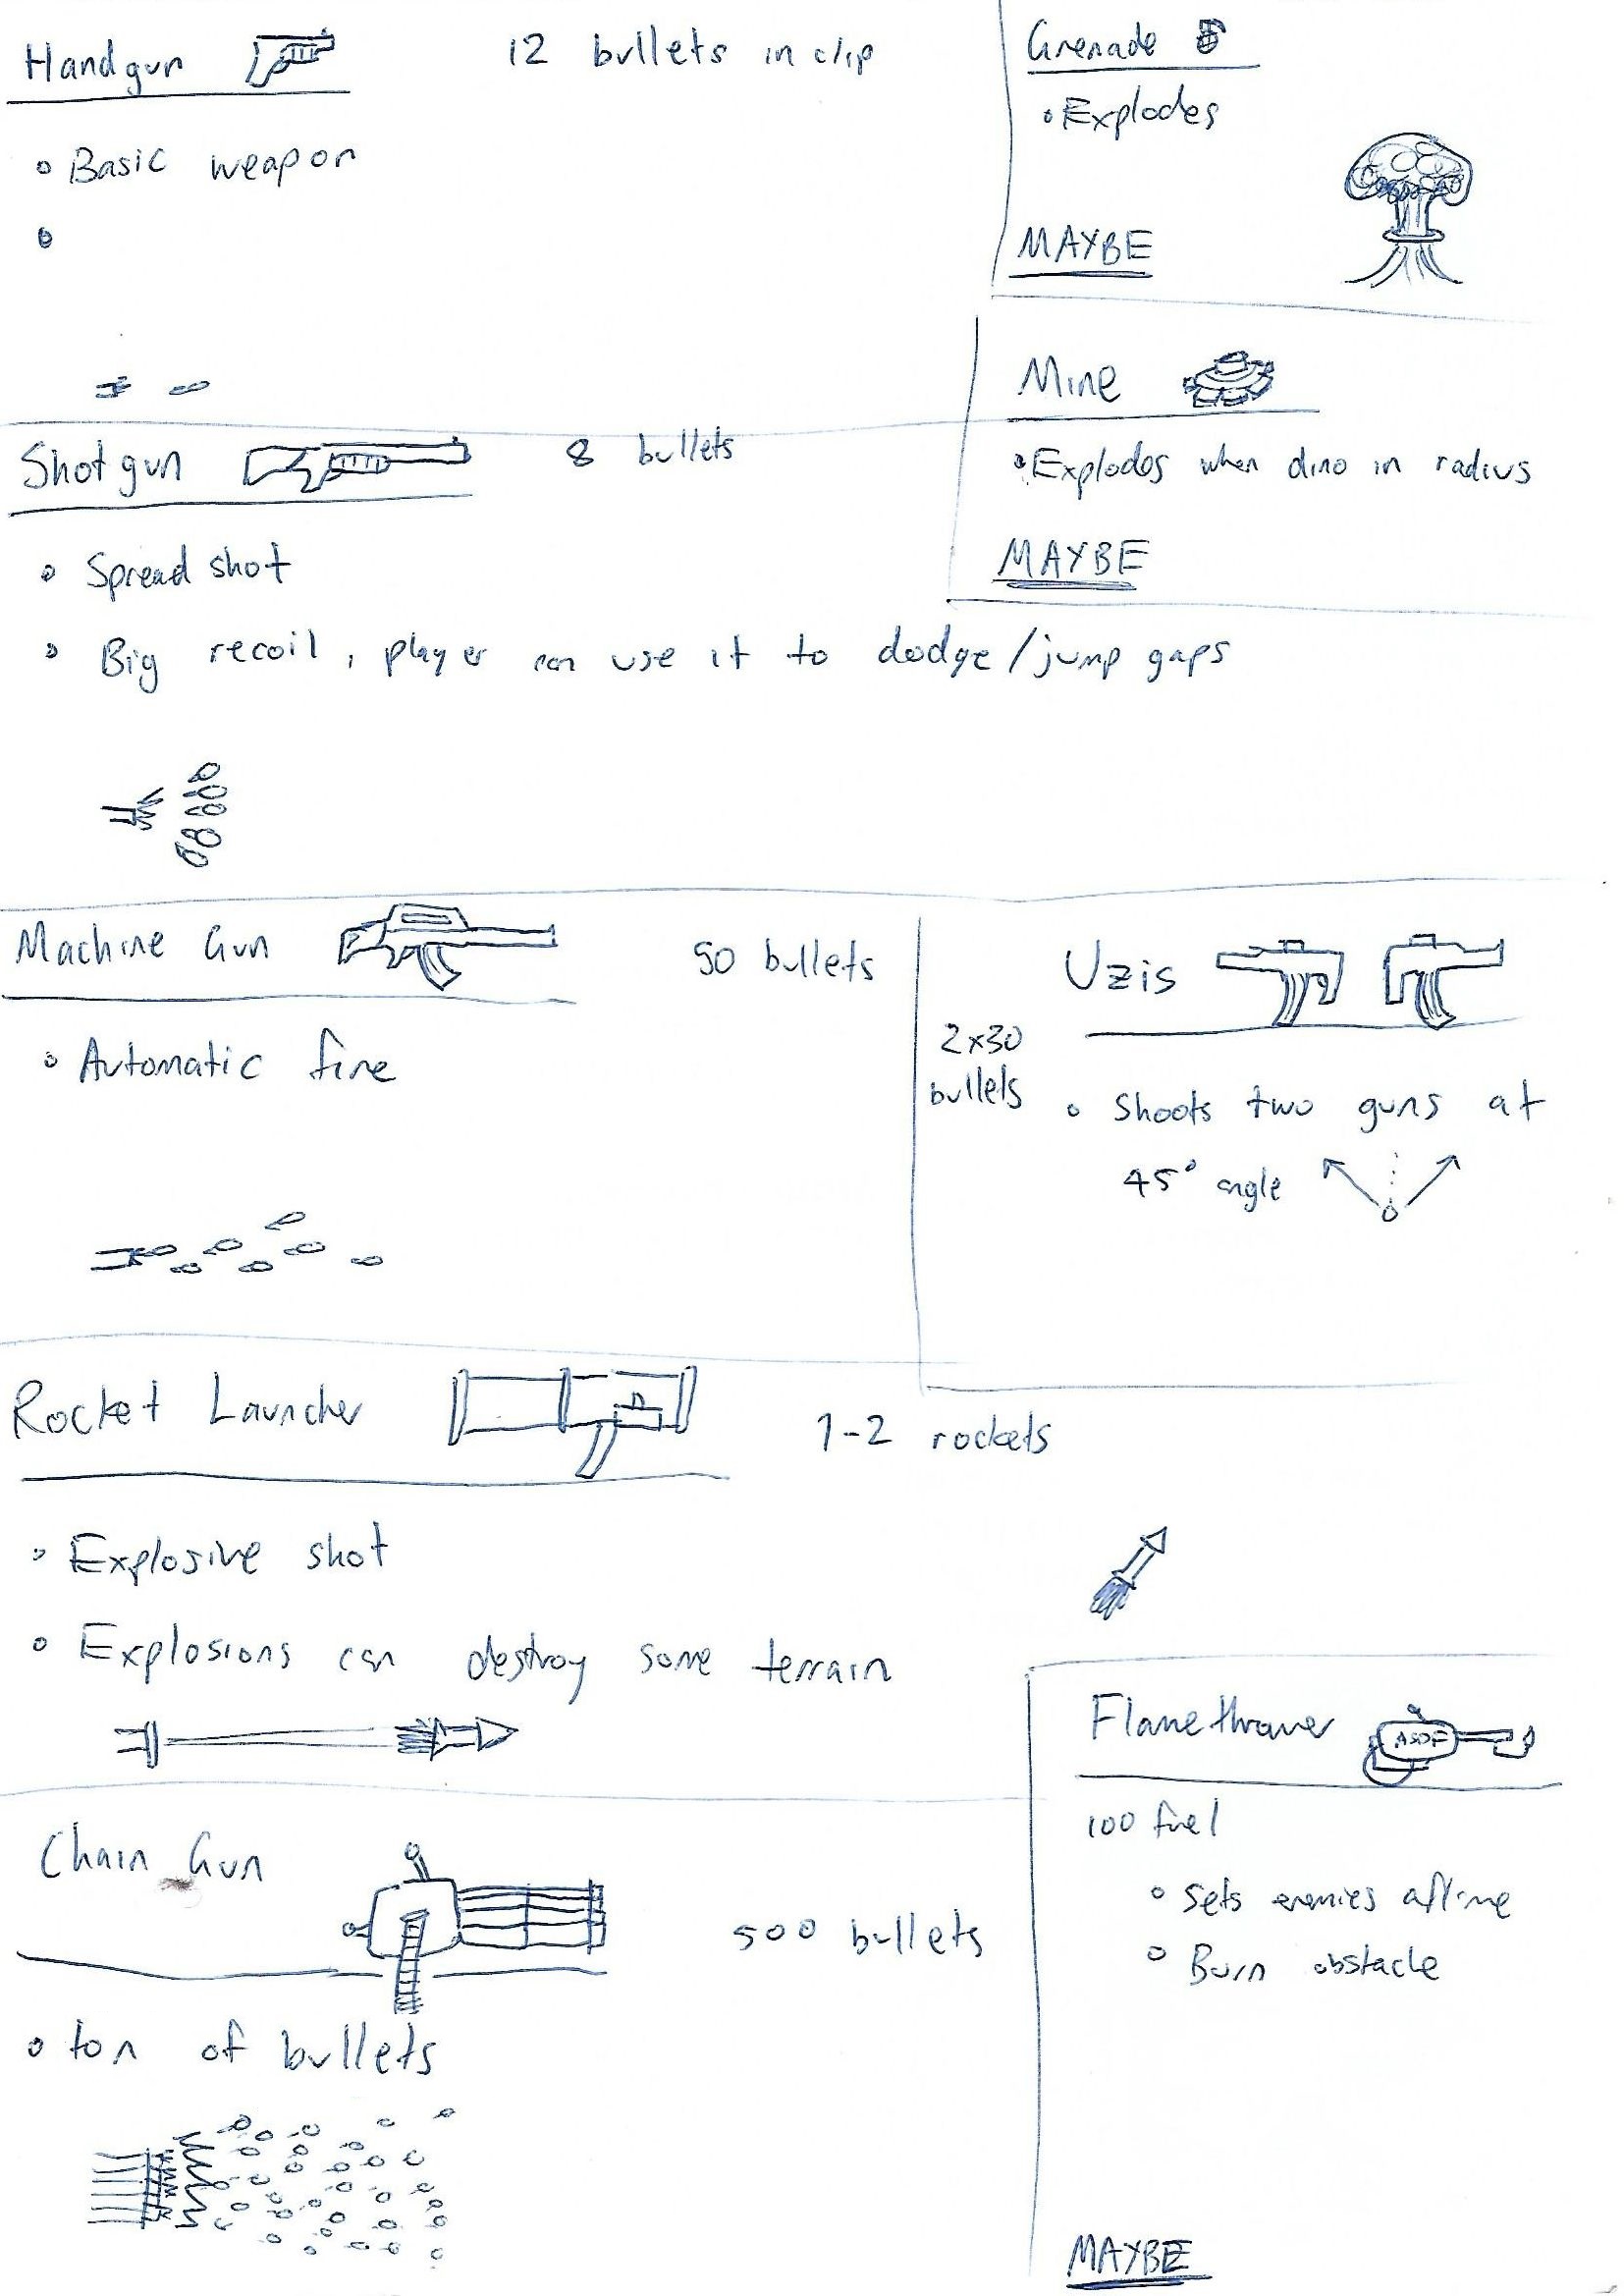 Handgun
12 bullets in clip
Basic weapon
Grenade
Explodes
MAYBE
Mine
Explodes when dino in radius
MAYBE
Shotgun
8 bullets
Spread shot
Big recoil, player can use it to dodge/jump gaps
Machine Gun
50 bullets
Automatic fire
Uzis
2x30
bullets
Shoots two guns at
45° angle
Rocket Launcher
1-2 rockets
Explosive shot
Explosions can destroy some terrain
Flamethrower
ASDF
100 fuel
Sets enemies afire
Burn obstacle
MAYBE
Chain Gun
500 bullets
ton of bullets